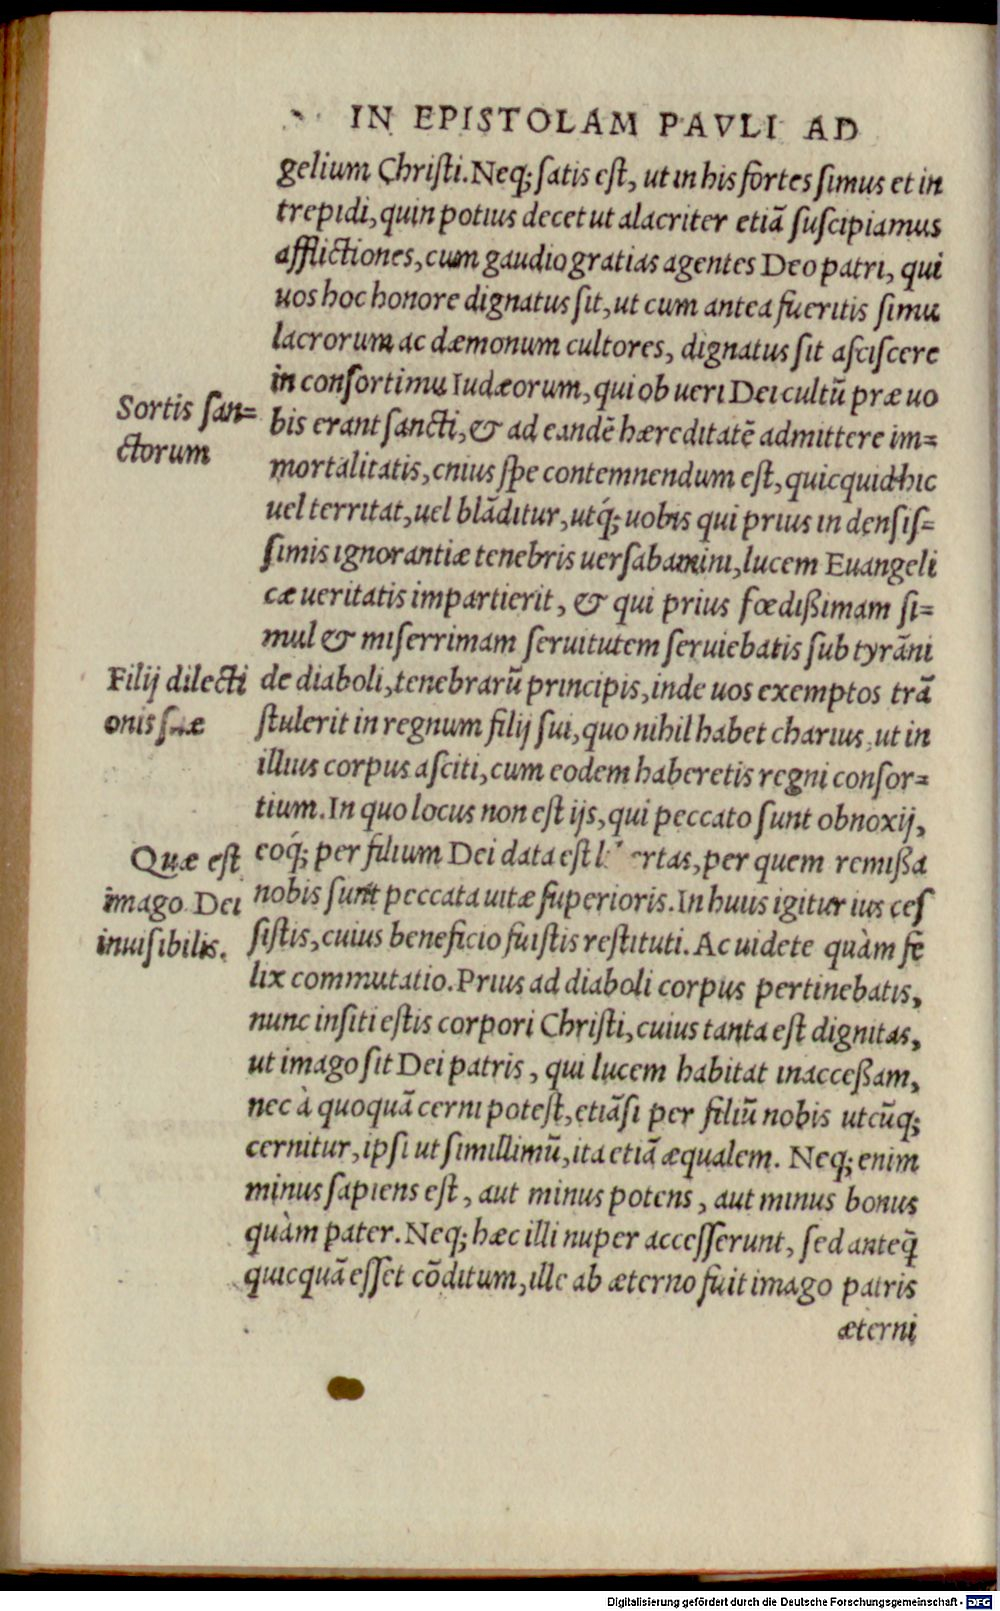 IN EPISTOLAM PAVLI AD
gelium Chriſti. Neq; ſatis eſt, ut in his fortes ſimus et in
trepidi, quin potius decet ut alacriter etiã ſuſcipiamus
afflictiones, cum gaudio gratias agentes Deo patri, qui
uos hoc honore dignatus ſit, ut cum antea fueritis ſimu
lacrorum ac dæmonum cultores, dignatus ſit aſciſcere
Sortis ſan=
ctorum
in conſortimu Iudæorum, qui ob ueri Dei cultũ præ uo
bis erant ſancti, & ad eandẽ hæreditatẽ admittere im=
mortalitatis, cnius ſpe contemnendum eſt, quicquid hic
uel territat, uel blãditur, utq́; uobis qui prius in denſiſ=
ſimis ignorantiæ tenebris uerſabamini, lucem Euangeli
cæ ueritatis impartierit, & qui prius fœdißimam ſi=
mul & miſerrimam ſeruitutem ſeruiebatis ſub tyrãni
Filij dilecti
onis ſuæ
de diaboli, tenebrarũ principis, inde uos exemptos trã
ſtulerit in regnum filij ſui, quo nihil habet charius, ut in
illius corpus aſciti, cum eodem haberetis regni conſor=
tium. In quo locus non eſt ijs, qui peccato ſunt obnoxij,
Quæ eſt
imago Dei
inuiſibilis.
eoq́; per filium Dei data eſt l ertas, per quem remißa
nobis ſunt peccata uitæ ſuperioris. In huius igitur ius ceſ
ſiſtis, cuius beneficio fuiſtis reſtituti. Ac uidete quàm fẽ
lix commutatio. Prius ad diaboli corpus pertinebatis,
nunc inſiti eſtis corpori Chriſti, cuius tanta eſt dignitas,
ut imago ſit Dei patris, qui lucem habitat inacceßam,
nec à quoquã cerni poteſt, etiãſi per filiũ nobis utcũq;
cernitur, ipſi ut ſimillimũ, ita etiã æqualem. Neq; enim
minus ſapiens eſt, aut minus potens, aut minus bonus
quàm pater. Neq; hæc illi nuper acceſſerunt, ſed anteq̃
quicquã eſſet cõditum, ille ab æterno fuit imago patris
æterni
Digitalisierung gefördert durch die Deutsche Forschungsgemeinschaft - DFG